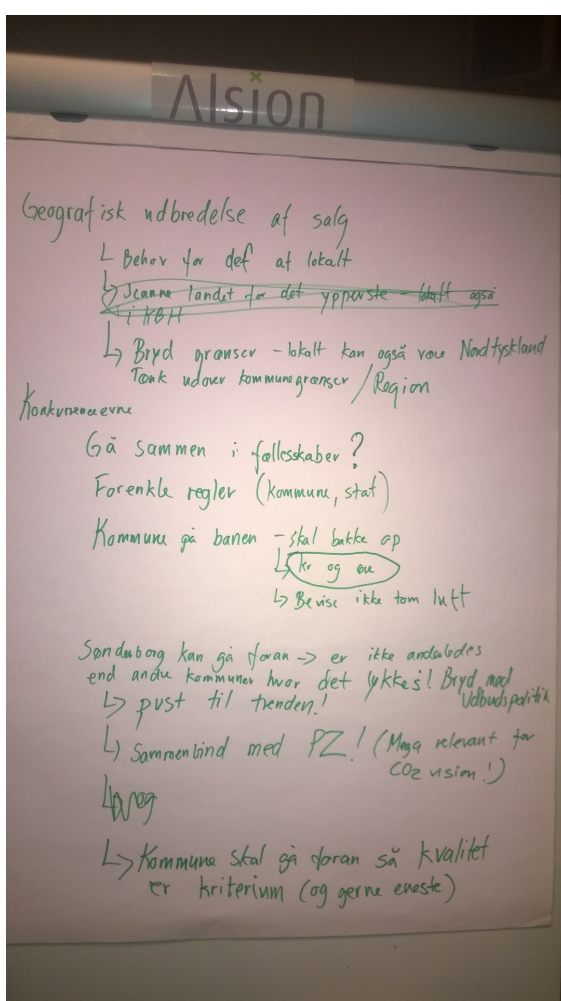 Alsion
Geografisk udbredelse af salg
↳ Behov for def af lokalt
↳ Jeanne landet for det ypperste - lokalt også
i KBH
↳ Bryd grænser - lokalt kan også være Nordtyskland
Tænk udover kommunegrænser / Region
Konkurrenceevne
Gå sammen i fællesskaber?
Forenkle regler (kommune, stat)
Kommune på banen - skal bakke op
↳ kr og øre
↳ Bevise ikke tom luft
Sønderborg kan gå foran -> er ikke anderledes
end andre kommuner hvor det lykkes! Bryd med
Udbudspolitik
↳ pust til trenden!
↳ Sammenbind med PZ! (Mega relevant for
CO2 vision!)
↳ Kommune skal gå foran så kvalitet
er kriterium (og gerne eneste)